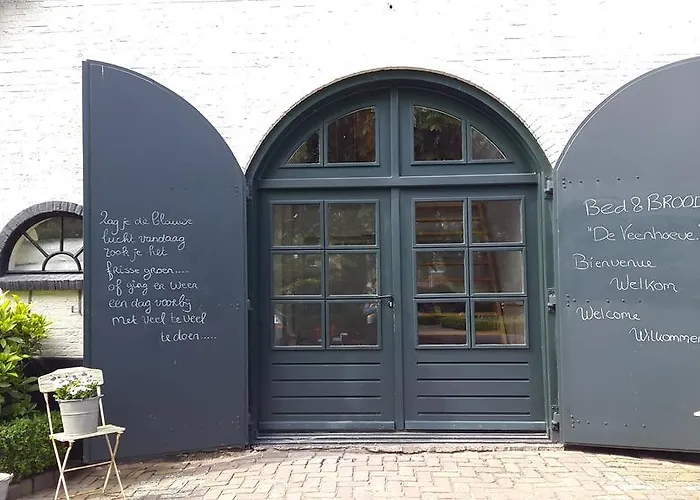 Zag je de blauwe
lucht vandaag
rook je het
frisse groen.....
of ging er weer
een dag voorbij
met veel te veel
te doen.....
Bed & BROOD
"De Veenhoeve"
Bienvenue
Welkom
Welcome
Wilkommen